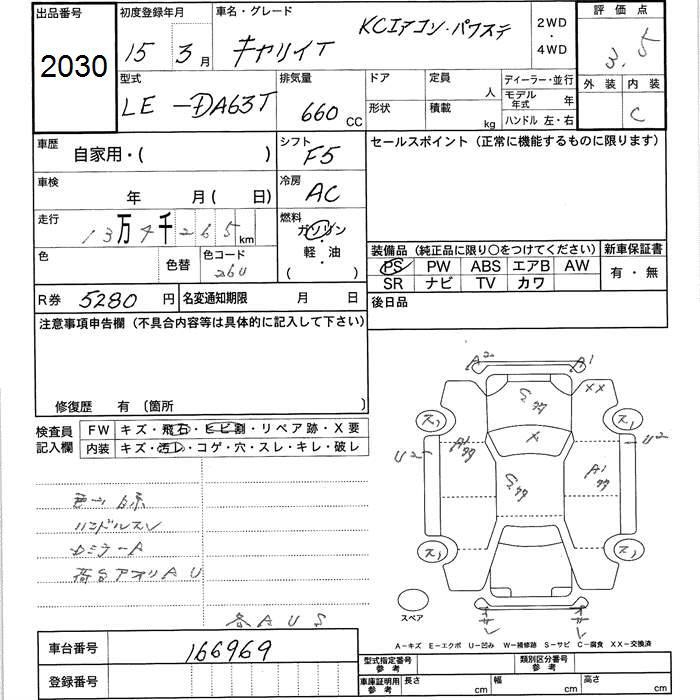 出品番号
2030
初度登録年月
15 年 3月
車名・グレード
キャリイT
KCエアコン・パワステ
2WD
・
4WD
評価点
3.5
外装 内装
C
型式
LE-DA63T
排気量
660 CC
ドア
形状
定員
人
積載
kg
ディーラー・並行
モデル年式 年
ハンドル 左・右
車歴
自家用・( )
シフト
F5
車検
年 月( 日)
冷房
AC
走行
13万4千265km
燃料
ガソリン
軽・油
( )
色
色替
色コード
26U
R券 5280 円
名変通知期限 月 日
セールスポイント(正常に機能するものに限ります)
装備品(純正品に限り○をつけてください)
PS PW ABS エアB AW
SR ナビ TV カワ
新車保証書
有・無
後日品
注意事項申告欄(不具合内容等は具体的に記入して下さい)
修復歴 有 〔箇所 〕
検査員記入欄
FW キズ・飛石・ヒビ割・リペア跡・X要
内装 キズ・汚レ・コゲ・穴・スレ・キレ・破レ
ハンドルスレ
荷台アオリAU
各AUS
A2
A1
XX
X
U2
A1
A1
U2
スペア
A-キズ E-エクボ U-凹み W-補修跡 S-サビ C-腐食 XX-交換済
車台番号 166969
登録番号
型式指定番号 参考
類別区分番号 参考
車庫証明用 参考
長さ cm
幅 cm
高さ cm